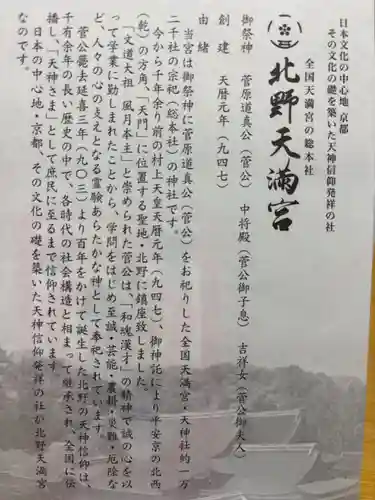 日本文化の中心地 京都
その文化の礎を築いた天神信仰発祥の社
全国天満宮の総本社
北野天満宮
御祭神 菅原道真公(菅公) 中将殿(菅公御子息) 吉祥女(菅公御夫人)
創建 天暦元年(九四七)
由緒
当宮は御祭神に菅原道真公(菅公)をお祀りした全国天満宮・天神社約一万
二千社の宗祀(総本社)の神社です。
今から千年余り前の村上天皇天暦元年(九四七)、御神託により平安京の北西
(乾)の方角、「天門」に位置する聖地・北野に鎮座致しました。
「文道大祖 風月本主」と崇められた菅公は、「和魂漢才」の精神で誠の心を以
って学業に勤しまれたことから、学問をはじめ至誠・芸能・農耕・災難・厄除な
ど、人々の心の支えとなる霊験あらたかな神として奉祀されています。
菅公薨去延喜三年(九〇三)より百年をかけて誕生した北野の天神信仰は、
千有余年の長い歴史の中で、各時代の社会構造と相まって継承され、全国に伝
播し、「天神さま」として庶民に至るまで信仰されています。
日本の中心地・京都、その文化の礎を築いた天神信仰発祥の社が北野天満宮
なのです。